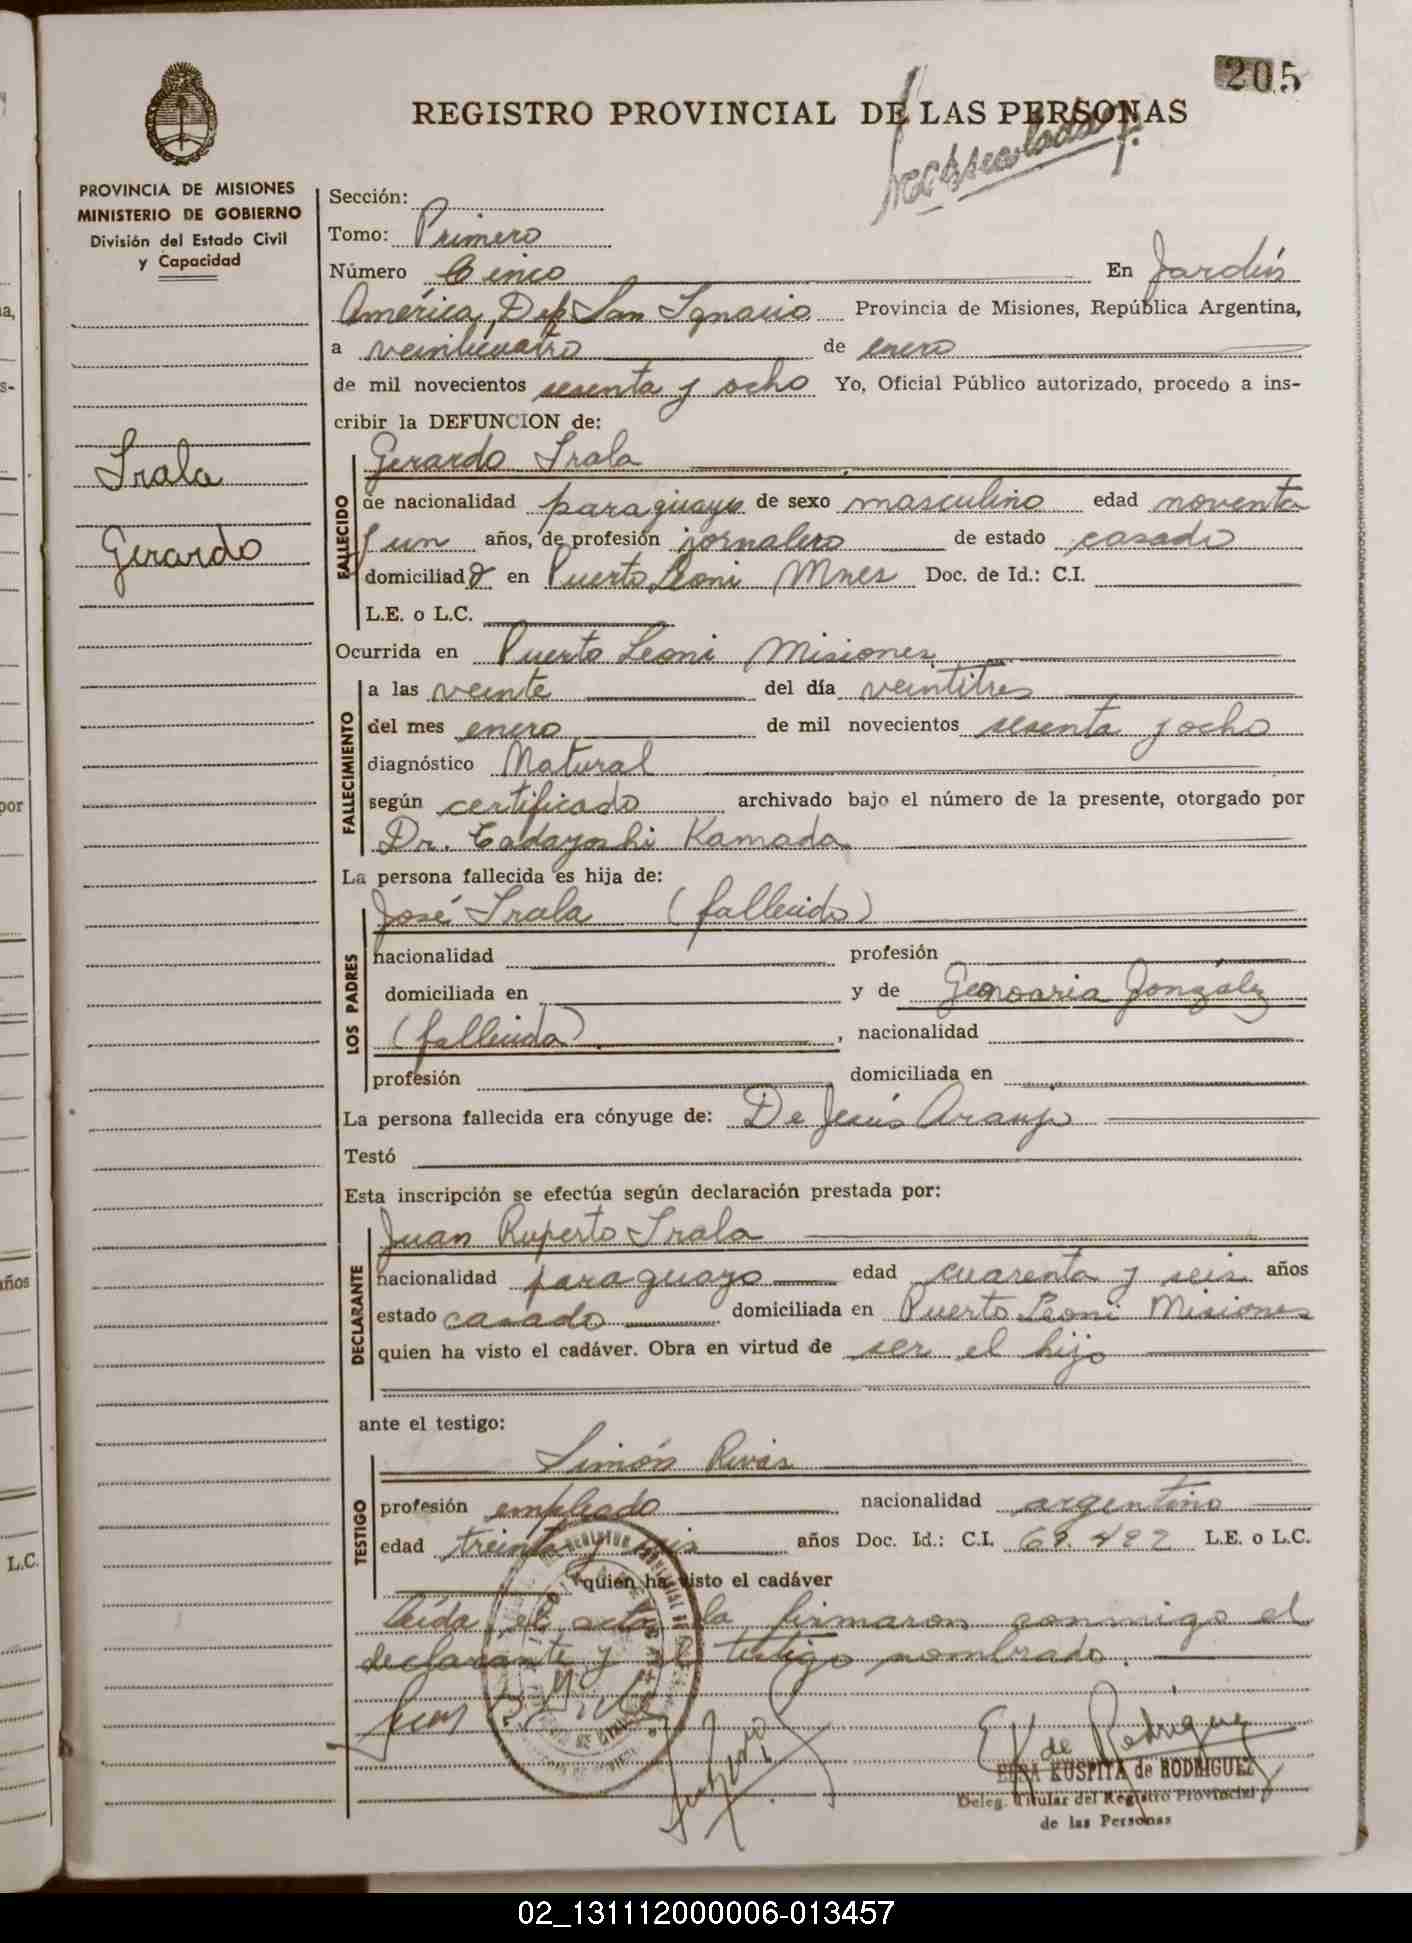 205
REGISTRO PROVINCIAL DE LAS PERSONAS
PROVINCIA DE MISIONES
MINISTERIO DE GOBIERNO
División del Estado Civil
y Capacidad
Irala
Gerardo
Sección:
Tomo: Primero
Número Cinco En Jardín
América, Dep. San Ignacio Provincia de Misiones, República Argentina,
a veinticuatro de enero
de mil novecientos sesenta y ocho Yo, Oficial Público autorizado, procedo a ins-
cribir la DEFUNCION de:
Gerardo Irala
FALLECIDO
de nacionalidad paraguayo de sexo masculino edad noventa
y un años, de profesión jornalero de estado casado
domiciliado en Puerto Leoni Mnes Doc. de Id.: C.I.
L.E. o L.C.
Ocurrida en Puerto Leoni Misiones
FALLECIMIENTO
a las veinte del día veintitres
del mes enero de mil novecientos sesenta y ocho
diagnóstico Natural
según certificado archivado bajo el número de la presente, otorgado por
Dr. Tadayoshi Kamada
La persona fallecida es hija de:
LOS PADRES
José Irala (fallecido)
nacionalidad profesión
domiciliada en y de González
(fallecida), nacionalidad
profesión domiciliada en
La persona fallecida era cónyuge de: De Jesús Araujo
Testó
Esta inscripción se efectúa según declaración prestada por:
DECLARANTE
Juan Ruperto Irala
nacionalidad paraguayo edad cuarenta y seis años
estado casado domiciliada en Puerto Leoni Misiones
quien ha visto el cadáver. Obra en virtud de ser el hijo
ante el testigo:
TESTIGO
Simón Rivas
profesión empleado nacionalidad argentino
edad treinta y seis años Doc. Id.: C.I. 69.492 L.E. o L.C.
quien ha visto el cadáver
Leída el acta la firmaron conmigo el
declarante y el testigo nombrado.
E K de Rodríguez
ELSA KUSPITA de RODRIGUEZ
Deleg. Titular del Registro Provincial
de las Personas
02_131112000006-013457